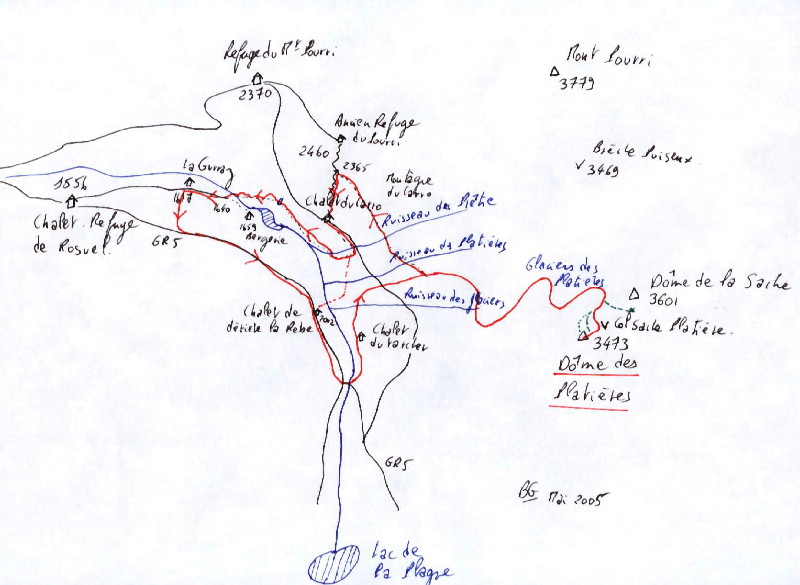 Refuge du Mt Pourri
2370
Mont Pourri
3779
Ancien Refuge
du Pourri
2460
2365
Brèche Puiseux.
3469
La Gurraz
1556
1617
1610
1659
Bergerie
Montagne
du Lario
Chalet du Lario
Chalet-Refuge
de Rosuel
GR5
Ruisseau des Platières
Glaciers des
Platières
Dôme de la Sache
3601
Ruisseau des glaciers
Chalet de
la Rebe
2002
Chalet
Col Sache Platière.
3473
Dôme des
Platières
GR5
BG Mai 2005
Lac de
la Plagne